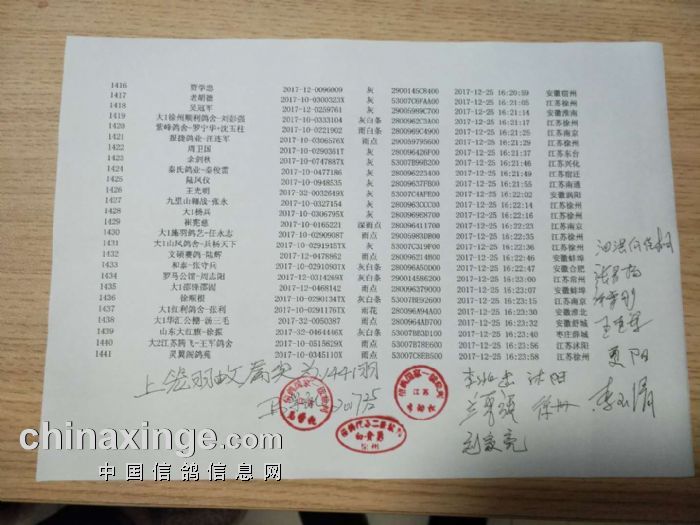 1416 贺学忠 2017-12-0096009 灰 2900145C8400 2017-12-25 16:20:59 安徽宿州
1417 老胡德 2017-10-0300323X 灰 53007C6FAA00 2017-12-25 16:21:05 江苏徐州
1418 吴冠军 2017-12-0259761 灰 290059E9C700 2017-12-25 16:21:14 安徽淮南
1419 大1徐州顺利鸽舍-刘彭强 2017-10-0333104 灰白条 2800962CDA00 2017-12-25 16:21:17 江苏徐州
1420 紫峰鸽舍-罗宁华+沈玉柱 2017-10-0221902 雨白条 2800969C4900 2017-12-25 16:21:25 江苏南京
1421 2017-10-0306576X 雨点 290059795600 2017-12-25 16:21:29 江苏徐州
1422 周卫国 2017-10-0290361T 灰 280096426F00 2017-12-25 16:21:37 江苏东台
1423 余剑秋 2017-10-0747887X 灰 53007B99B200 2017-12-25 16:21:31 江苏兴化
1424 秦氏鸽业-秦俊雷 2017-10-0477186 灰 280096223400 2017-12-25 16:21:49 江苏宿迁
1425 陆凤仪 2017-10-0948535 灰 28009637FB00 2017-12-25 16:21:55 江苏南通
1426 王光明 2017-32-0032649X 灰 53007C4AFE00 2017-12-25 16:22:02 安徽涡阳
1427 九里山翱战-张永 2017-10-0327154 灰 28009630CC00 2017-12-25 16:22:14 江苏徐州
1428 大1杨兵 2017-10-0306795X 灰 280096968700 2017-12-25 16:22:16 江苏徐州
1429 崔宪慈 2017-10-0165221 深雨点 280096411700 2017-12-25 16:22:23 江苏南京
1430 大1施羽鸽艺-任永志 2017-10-0290908T 雨点 2900598DDB00 2017-12-25 16:22:35 江苏徐州
1431 大1山凤鸽舍-兵杨天下 2017-10-0291918YX 灰 53007C319F00 2017-12-25 16:22:36 江苏徐州
1432 文硕赛鸽-陆辉 2017-12-0478862 雨点 280096214B00 2017-12-25 16:22:46 安徽蚌埠
1433 和泰-张守兵 2017-10-0291090TX 灰 2800966A5D00 2017-12-25 16:22:56 安徽合肥
1434 罗马公馆-周志阳 2017-12-0314269X 灰白条 290014586200 2017-12-25 16:23:01 江苏常州
1435 大1邵锋邵固 2017-12-0468142 雨点 280096230000 2017-12-25 16:23:07 安徽蚌埠
1436 徐顺根 2017-10-0290134TX 灰白条 53007BE92600 2017-12-25 16:23:15 江苏南京
1437 大1红利鸽舍-张利 2017-10-0291176TX 雨花 280096A94A00 2017-12-25 16:23:09 安徽淮北
1438 2017-32-0050387 雨点 2800964AD700 2017-12-25 16:23:32 安徽舒城
1439 山东大红旗-徐振 2017-32-0464446X 灰白条 53007B83DE00 2017-12-25 16:23:51 枣庄薛城
1440 大2江苏腾飞-王军鸽舍 2017-10-0515629X 雨点 53007BD7E600 2017-12-25 16:23:53 江苏沭阳
1441 灵翼阁鸽苑 2017-10-0345110X 雨点 53007C8EB500 2017-12-25 16:23:58 江苏徐州
上笼羽数为1441羽
沭阳
chinaxinge.com
中国信鸽信息网